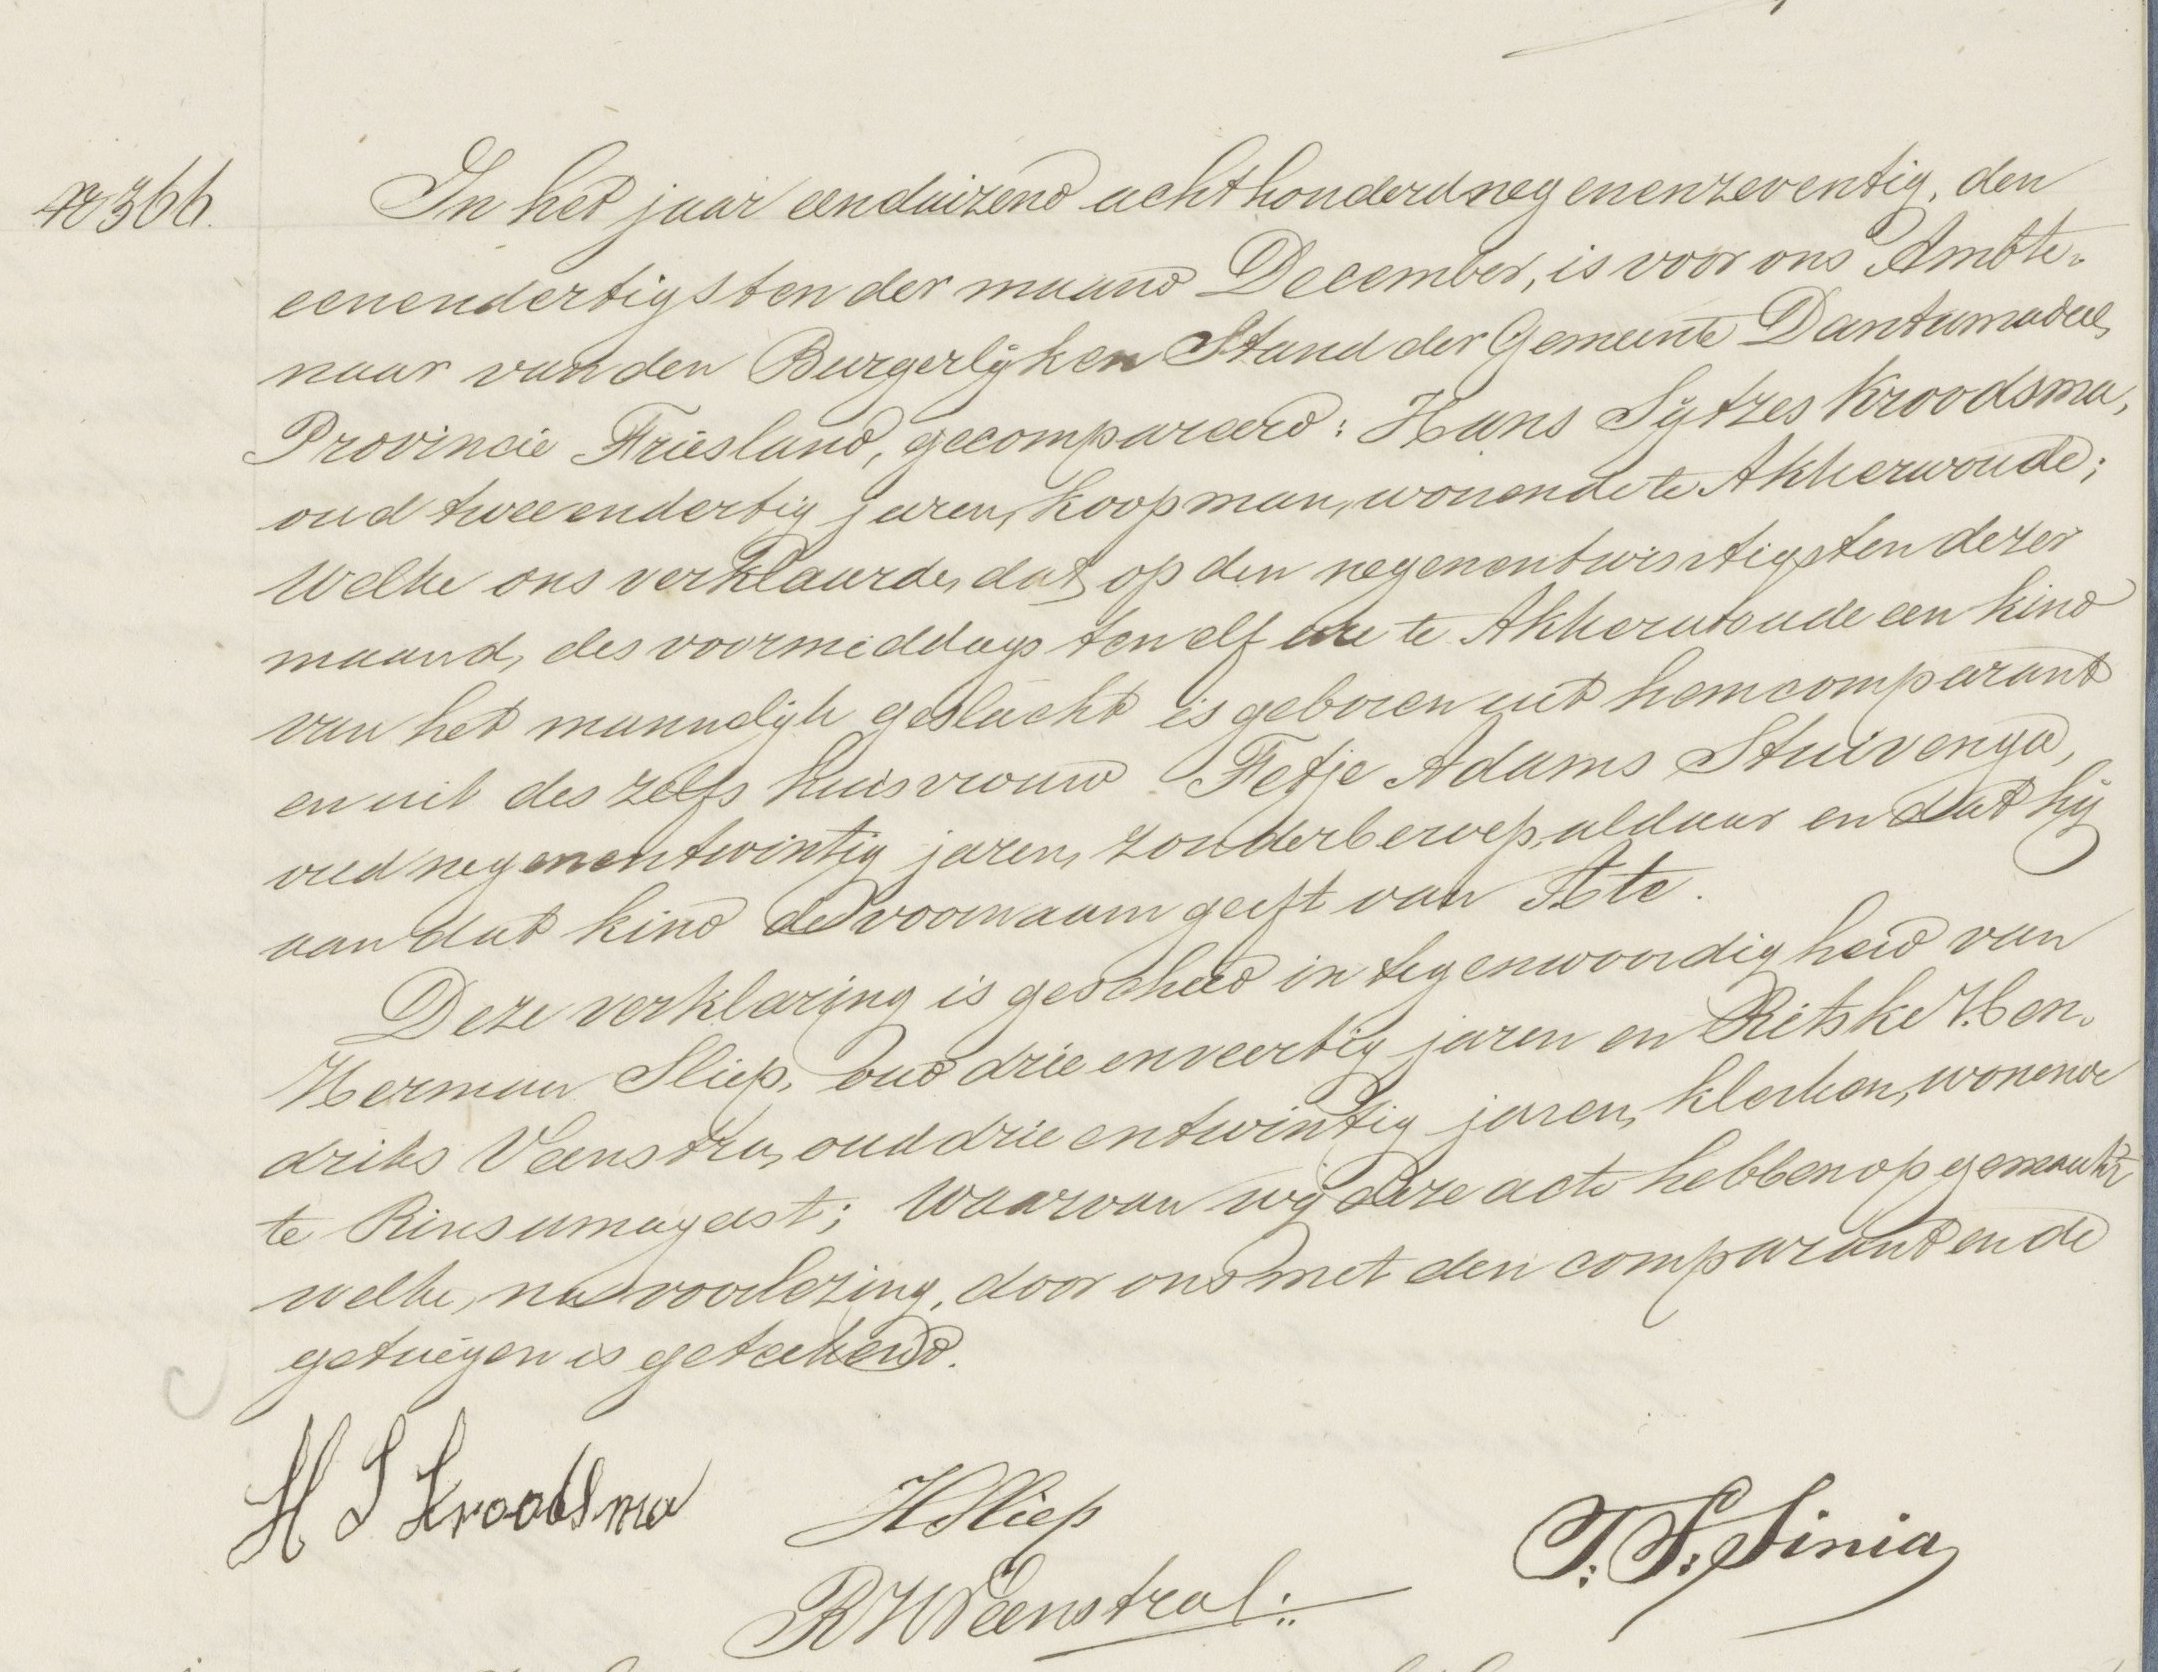 No 366.
In het jaar eenduizend achthonderdnegenenzeventig, den
eenendertigsten der maand December, is voor ons Ambte-
naar van den Burgerlijken Stand der Gemeente Dantumadeel,
Provincie Friesland, gecompareerd: Hans Sytzes Kroodsma,
oud tweeendertig jaren, koopman, wonende te Akkerwoude;
Welke ons verklaarde, dat op den negenentwintigsten dezer
maand, des voormiddags ten elf ure te Akkerwoude een kind
van het mannelijk geslacht is geboren uit hem comparant
en uit deszelfs huisvrouw Fetje Adams Stuivenga,
oud negenentwintig jaren, zonder beroep, aldaar en dat hij
aan dat kind de voornaam geeft van Ate.
Deze verklaring is geschied in tegenwoordigheid van
Herman Sliep, oud drieenveertig jaren en Ritske Hen-
driks Veenstra, oud drieentwintig jaren, klerken, wonende
te Rinsumageest; Waarvan wij deze acte hebben opgemaakt
welke, na voorlezing, door ons met den comparant en de
getuigen is geteekend.
H S Kroodsma
H Sliep
T. S. Sinia
R H Veenstra